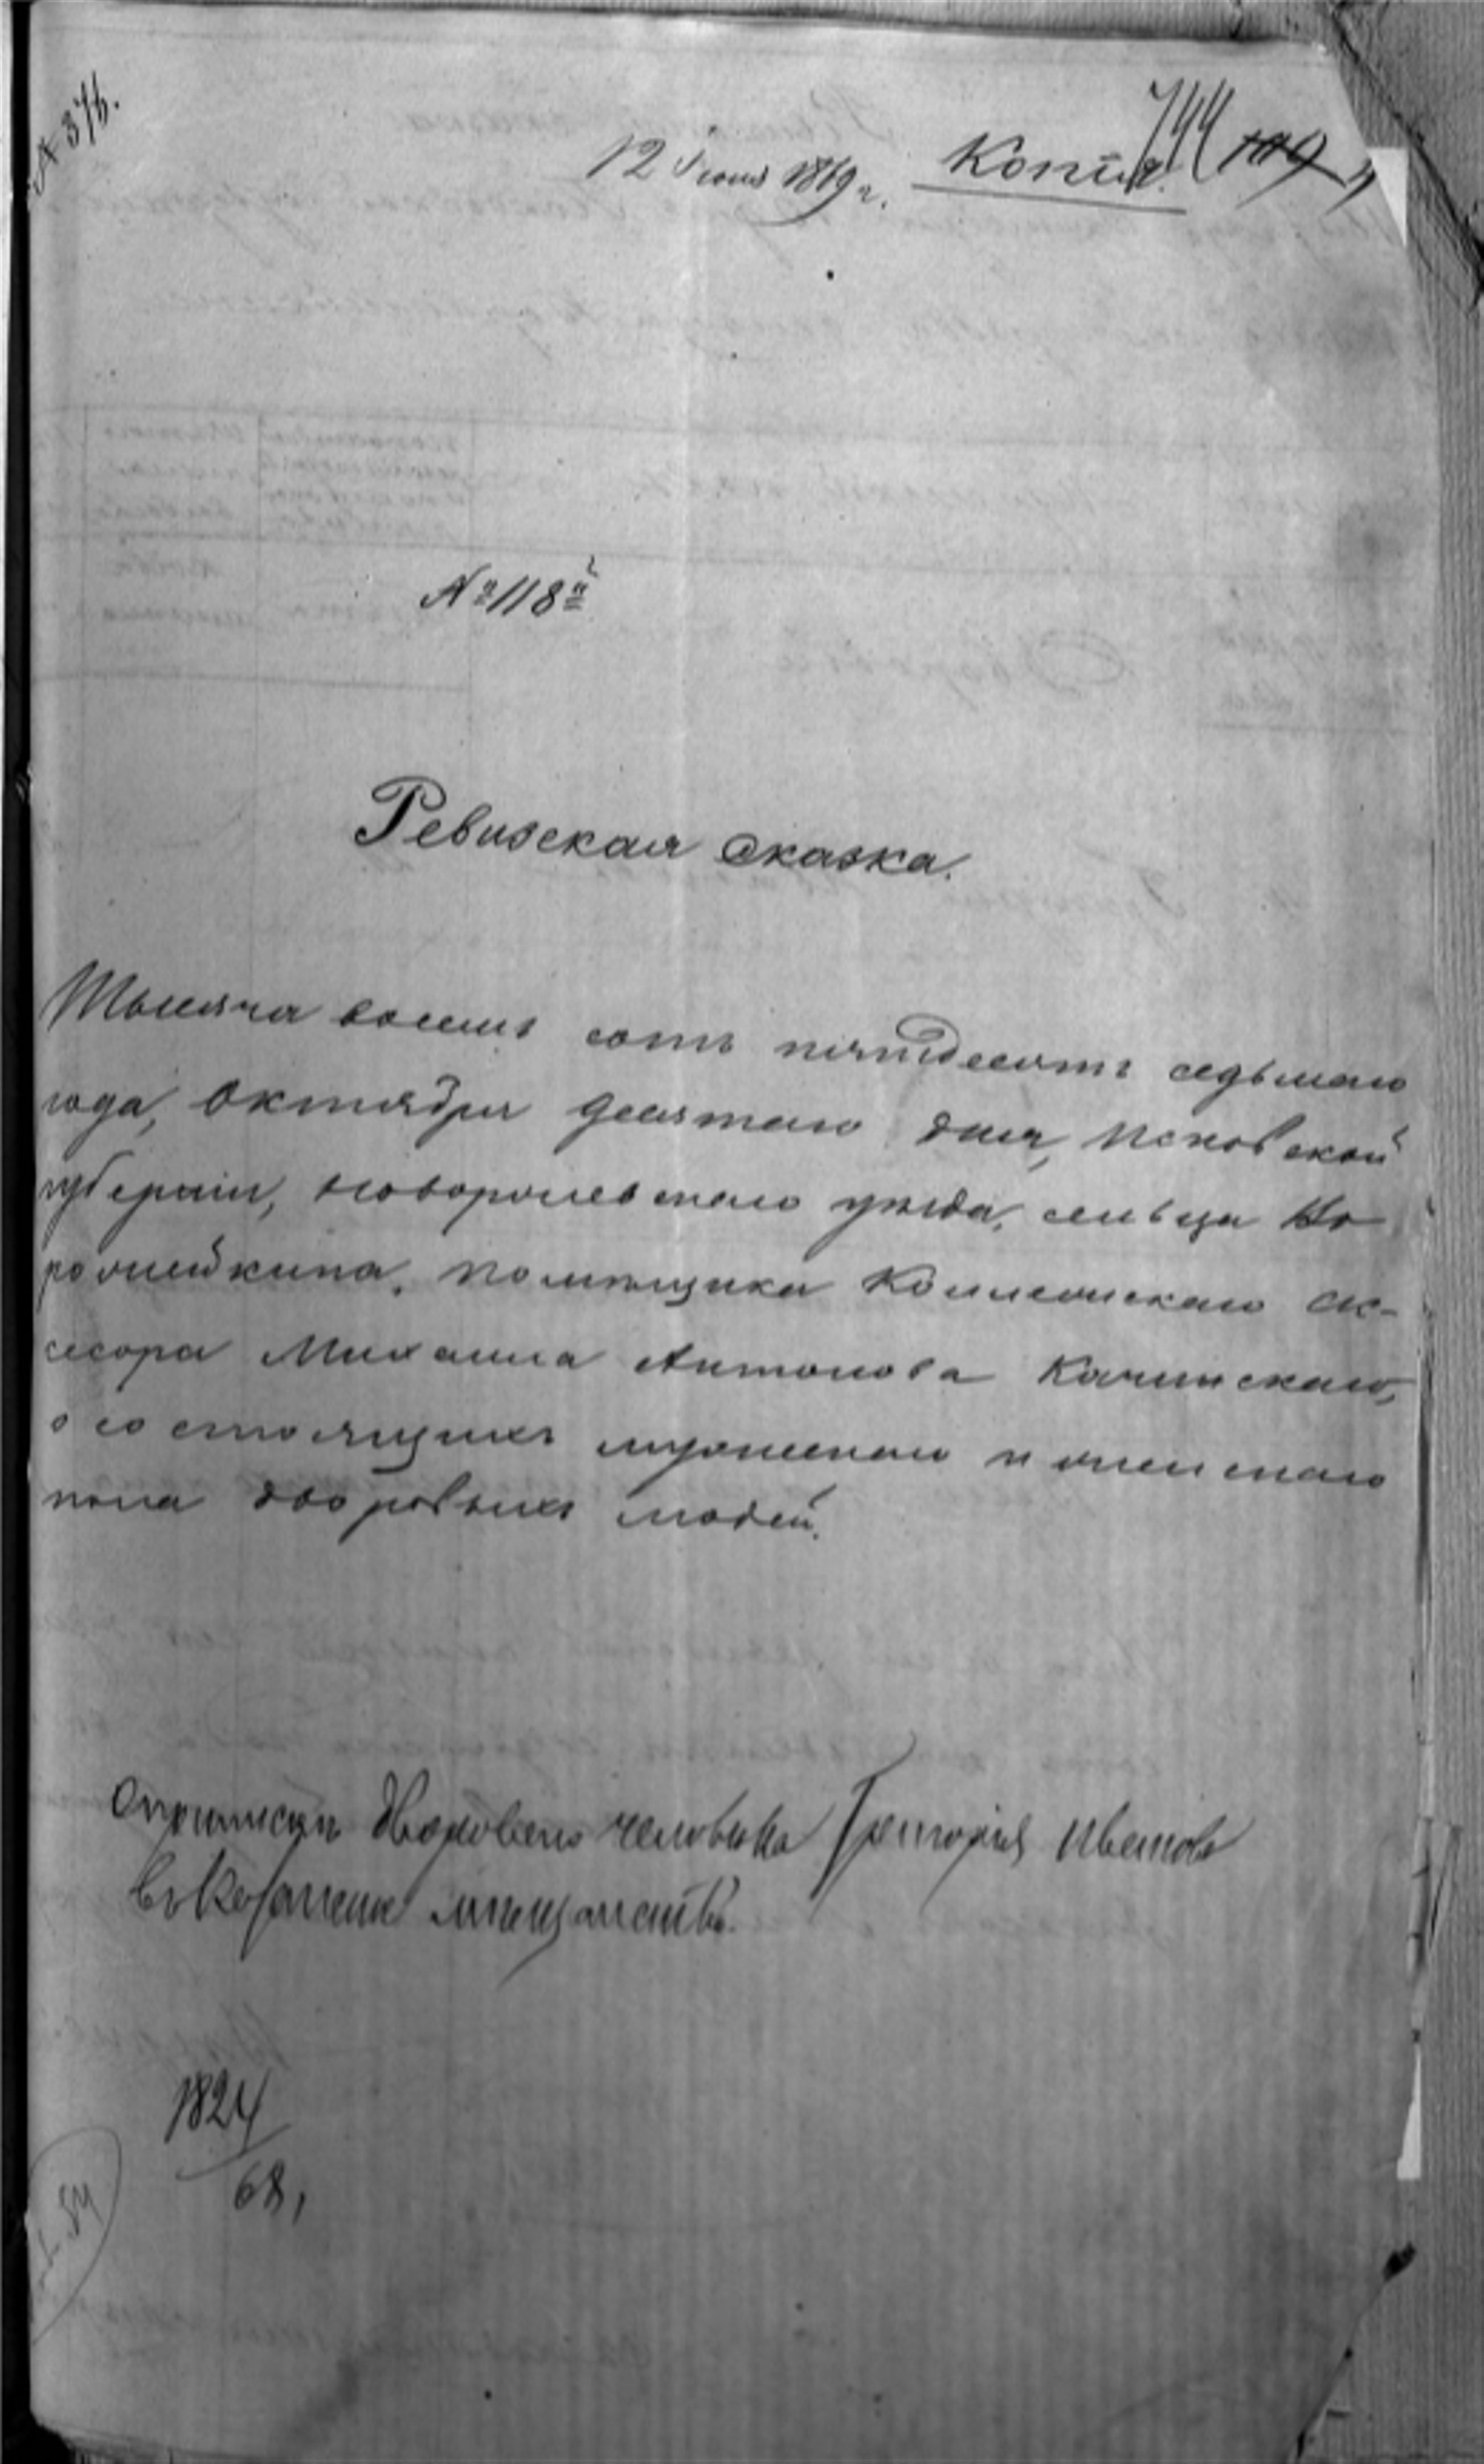 № 376.
12 Іюня 1869 г. Копія. 744
№ 118й
Ревизская сказка.
Тысяча восемь сотъ пятьдесятъ седьмаго
года, Октября девятаго дня, Псковской
губерніи, Новоржевскаго уѣзда, сельца
помѣщика Коллежскаго Ас-
сесора Михаила Антонова Качинскаго,
о состоящихъ мужескаго и женскаго
пола дворовыхъ людей.
О припискѣ Двороваго человѣка Григорія Иванова
въ мѣщанство.
1824
68,